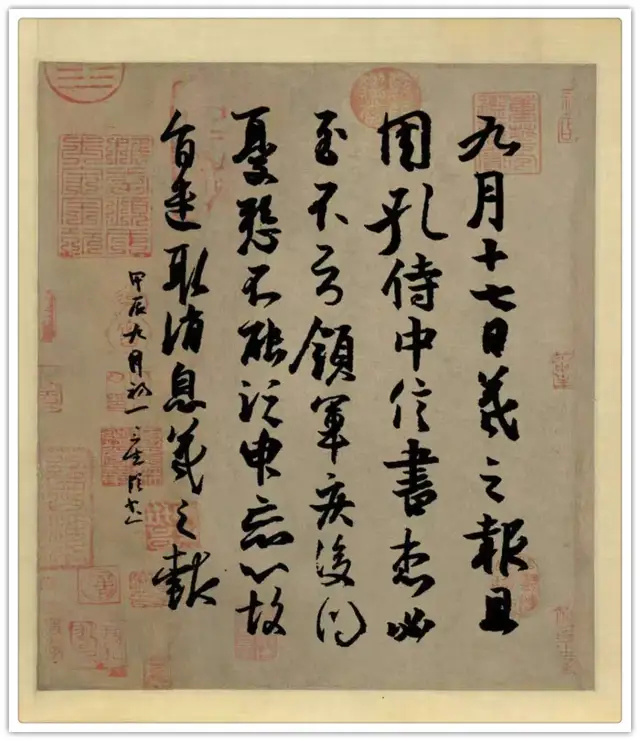 九月十七日羲之報且
因孔侍中信書想必
至不知領軍疾後問
憂懸不能須臾忘心故
旨遣取消息羲之報
甲辰九月初一